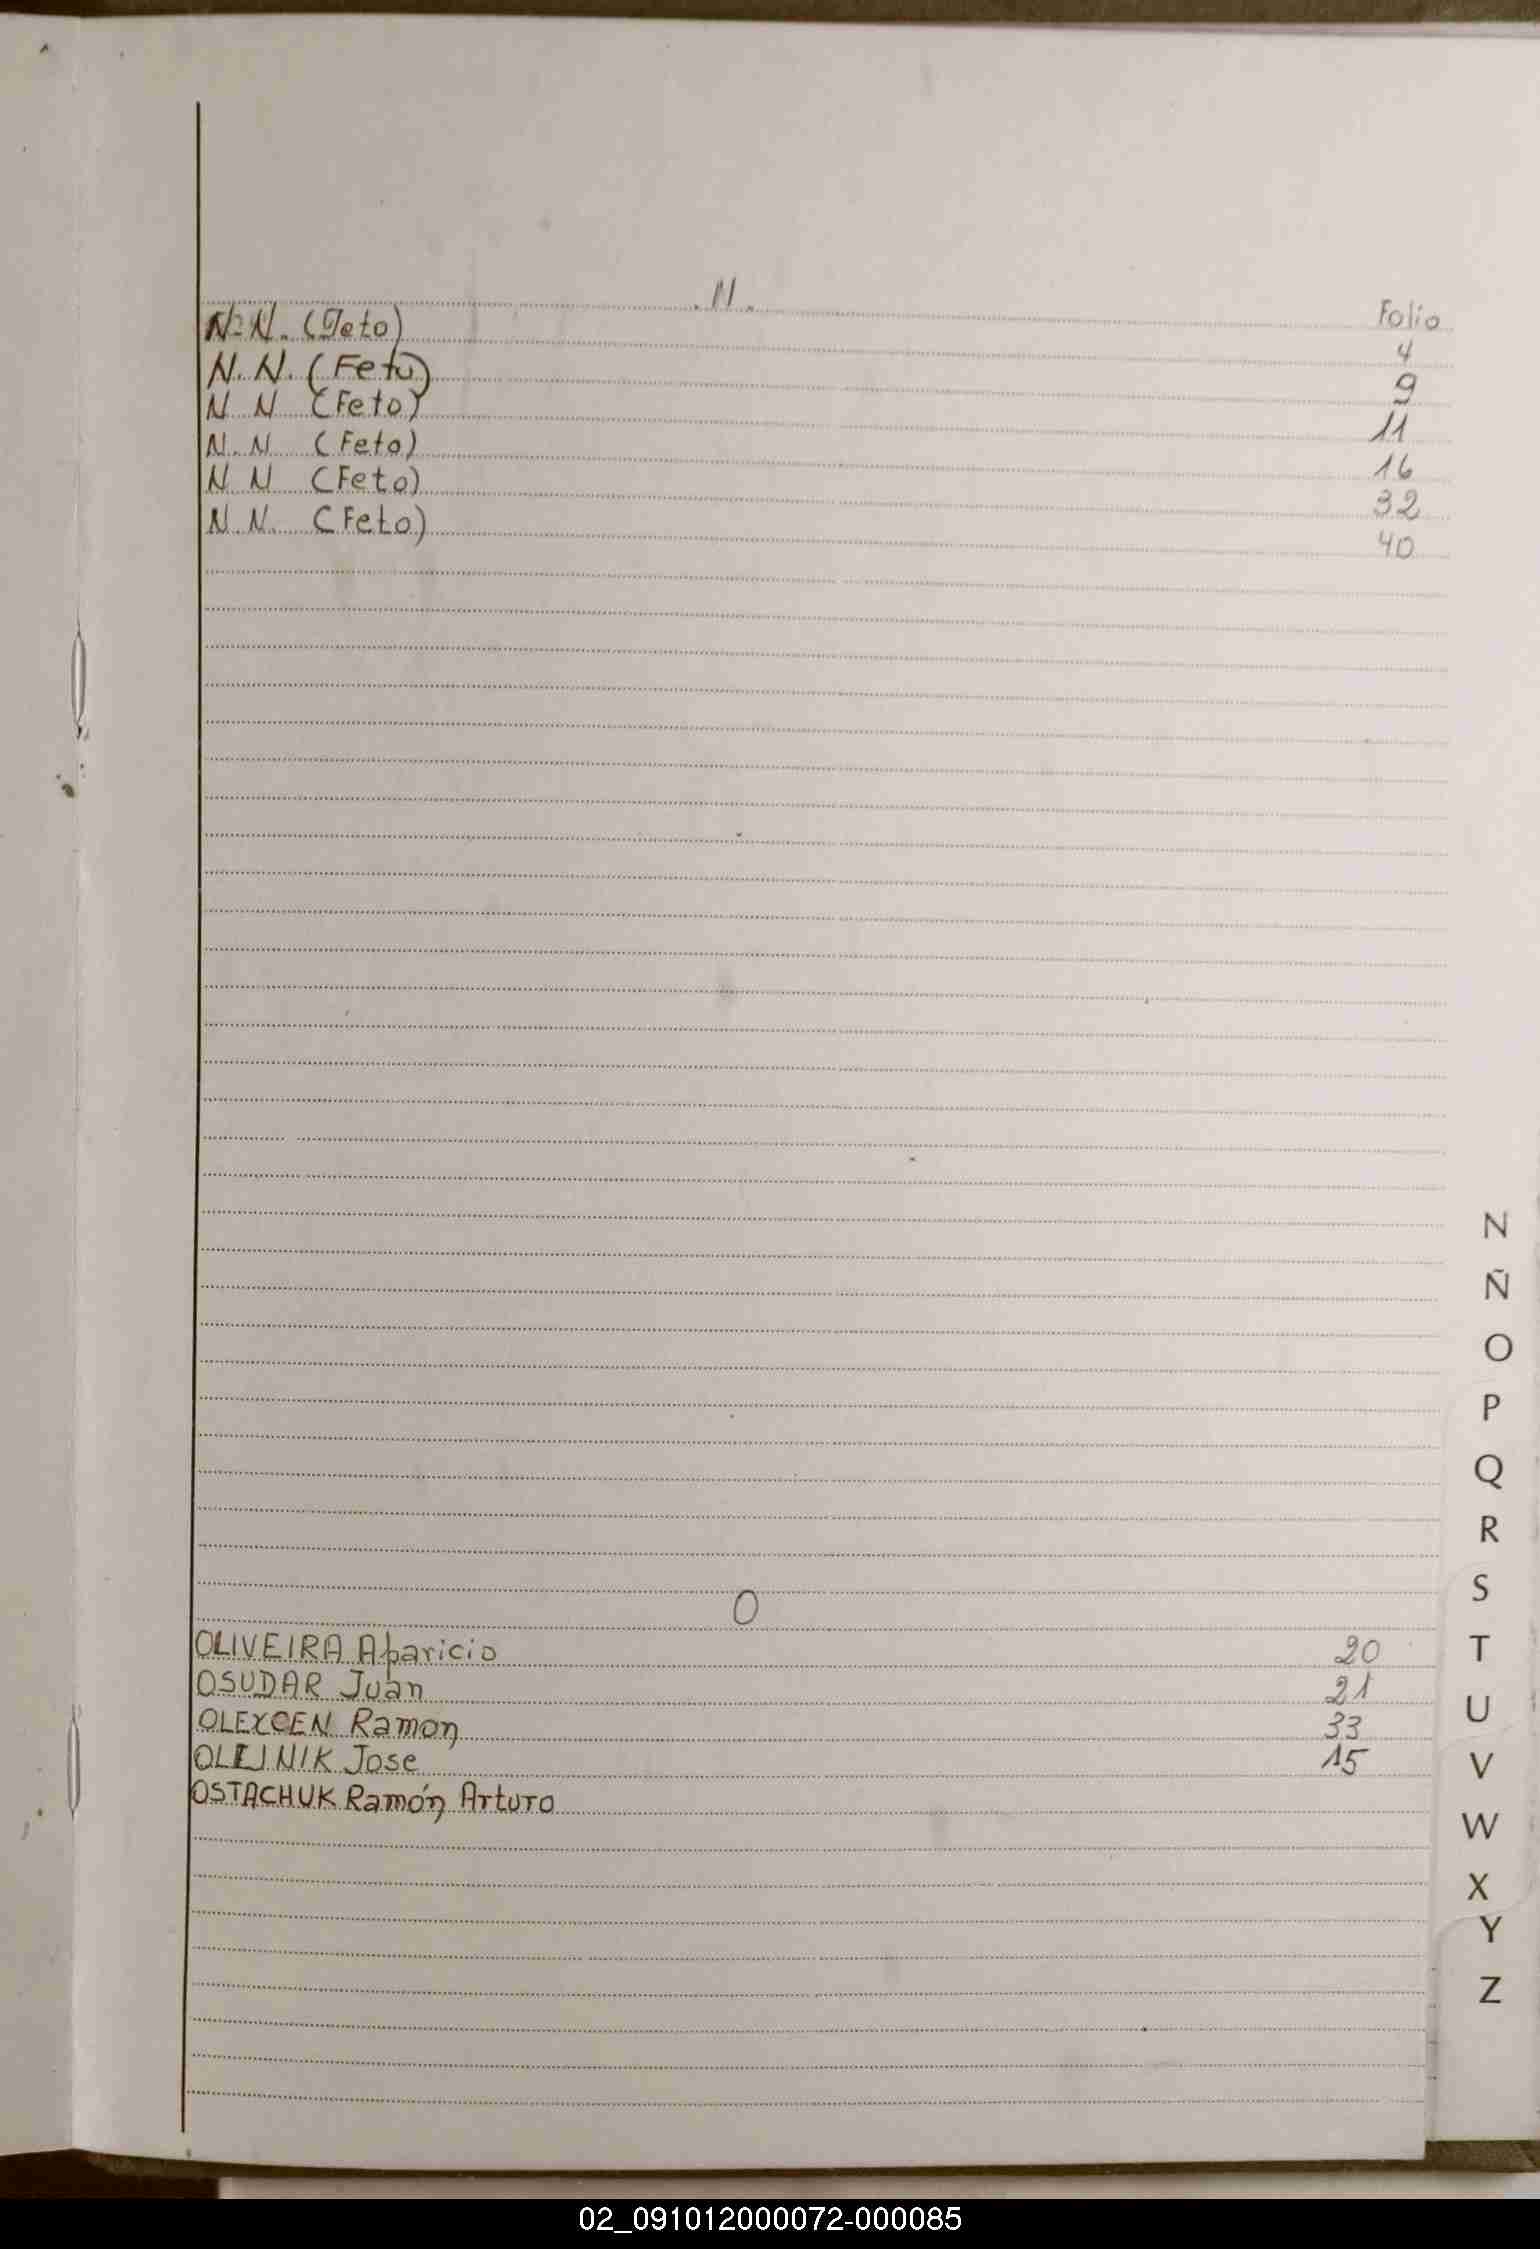 .N.
Folio
N.N. (Feto) 4
N.N. (Feto) 9
N N (Feto) 11
N.N (Feto) 16
N N (Feto) 32
N N. (Feto) 40
O
OLIVEIRA Aparicio 20
OSUDAR Juan 21
OLEXCEN Ramon 33
OLEJNIK Jose 15
OSTACHUK Ramón Arturo
N
Ñ
O
P
Q
R
S
T
U
V
W
X
Y
Z
02_091012000072-000085